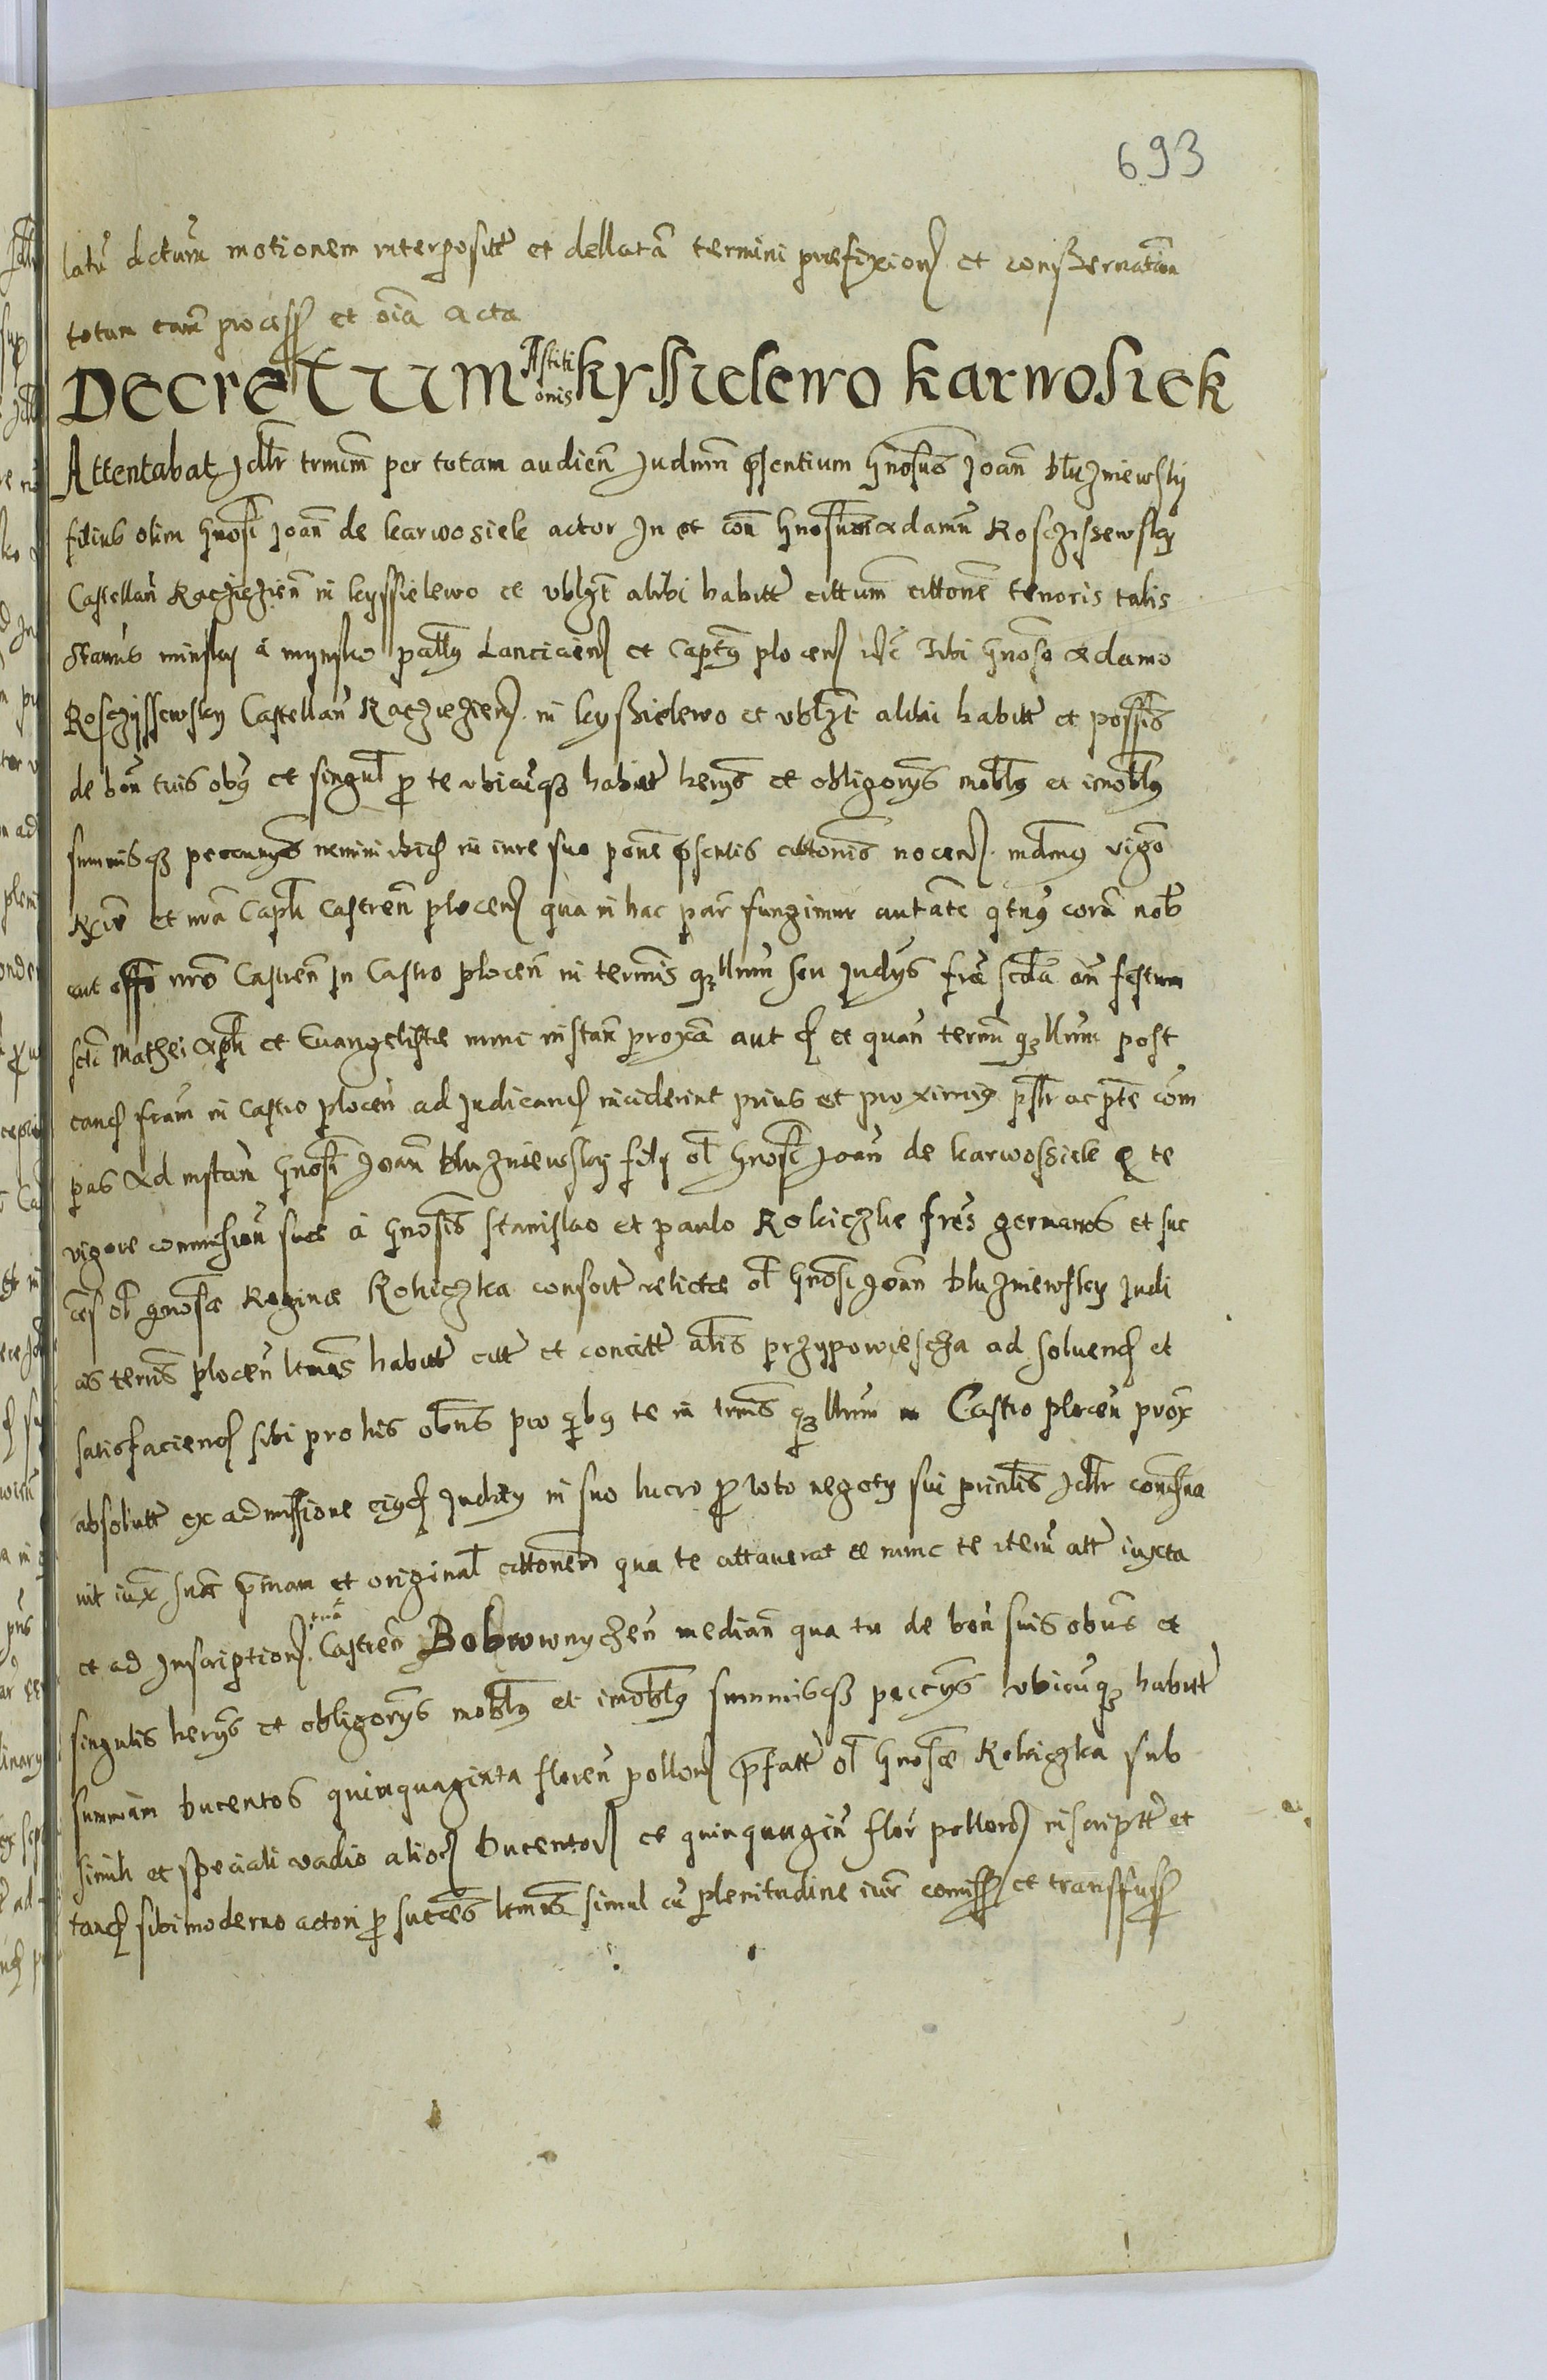 693
latũ acturũ motionem interpositt et dellatã termini præfixion et conßernatam
totam eam process et oia Acta
Decretum Astiti onis kyssielewo karwosiek
Attentabat Jdlr trmim per totam audien Judmm psentium Gnosus Joan bluzniewsky
filius olim Gnosi Joan de karwosiek actor In et con Gnosum Adamũ Rosczissewsky
Castellan Racziezien in kyssielewo et vblzt alibi habitt cittum cittone tenoris talis
Stanus minsky á mynsko pallus Lanciciens et Captus plocens etc Tibi Gnoso Adamo
Rosczyssewsky Castellanũ Racziezien. in kyßielewo et vblzt alibi habitt et possis
de bon tuis obus et singul p te vbicuqz habitt herys et obligorys moblus et imoblus
summisqz peccunys nemini vbiq in iure suo pone psentis cittonis nocens. mdmus vigo
et nrã Caplı Castren plocens qua in hac par fungimur autate qtnus corã nob
aut offo nro Castren In Castro plocen in termis qzllum seu Judys fra scda an festum
scti Mathei Apli et Euangelistæ nunc instan proxã aut q et quan termi qzllum post
eand fram in Castro plocen ad Judicand inciderint prius et proximius pslr ac pte com
pas Ad instan Gnosi Joan bluzniewsky fily ol Gnosi Joan de karwossiek q te
vigore commission suæ á Gnosis Stanislao et paulo Rokiczke fres germanos et suc
ces ol gnosæ Reginæ Rokiczka consort relictæ ol Gnosi Joan bluzniewsky Judi
as terris plocen ltmas habitt citt et concitt alis przypowiescza ad soluend et
satisfaciend sibi pro his obns pro qbus te in trmis qzllum in Castro plocen prox
absolutt ex admissione eiusq Judity in suo lucro p toto negoty sui prinlis Jdlr condna
uit iux suã pmam et original cittonem qua te attauerat et nunc te iterũ att iuxta
et ad Inscription. tuã Castren Bobrownyczen median qua tu de bon suis obus et
singulis herys et obligorys moblus et imoblus summisqz peccys vbicuqz habitt
summam ducentos quinquaginta floren pollon pfatt ol Gnosæ Rokiczka sub
simili et speciali vadio alior ducentor et quinquagin flor pollor inscriptt et
tand sibi moderno actori p succes ltmas simul cũ plenitudine iur comiss et transfuss